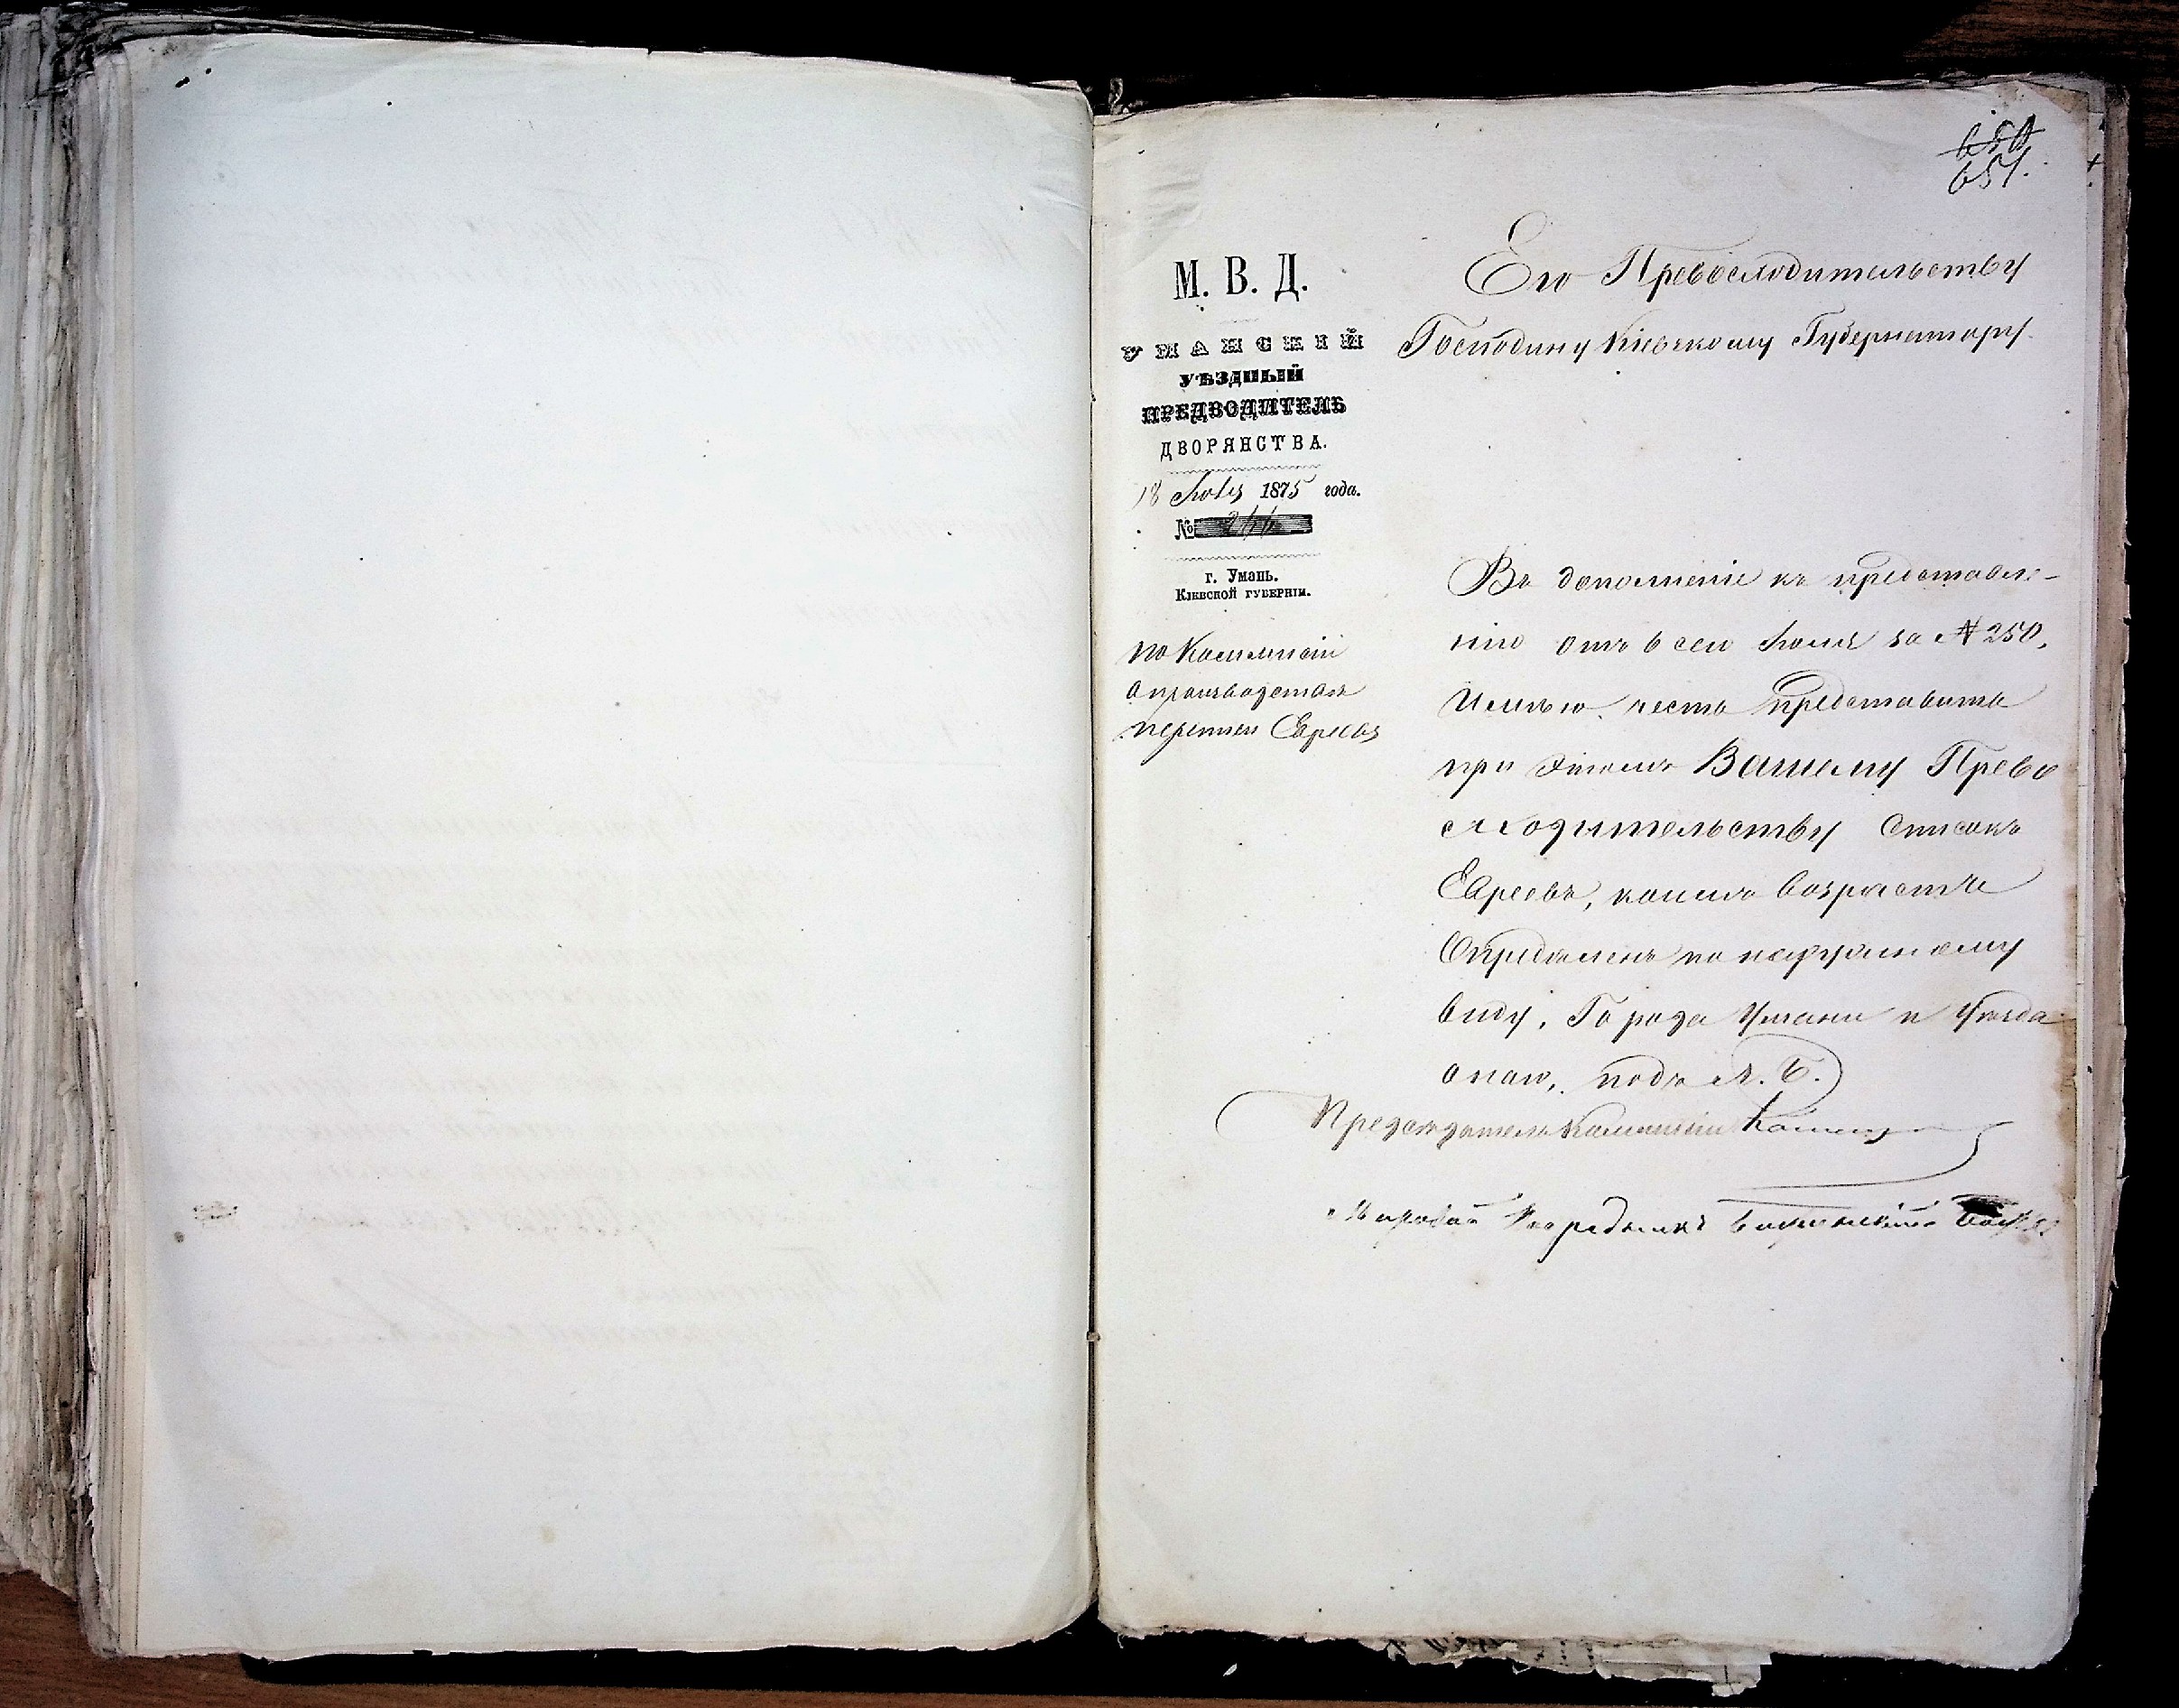 650
651.
М. В. Д.
УМАНСКІЙ
УѢЗДНЫЙ
ПРЕДВОДИТЕЛЬ
ДВОРЯНСТВА.
18 Іюля 1875 года.
№ 266
г. Умань.
Кіевской губерніи.
по Коммисіи
о производствѣ
переписи Евреевъ
Его Превосходительству
Господину Кіевскому Губернатору.
Въ дополненіе къ представле-
нію отъ 6 сего Іюля за № 250,
Имѣю честь представить
при этомъ Вашему Прево
сходительству Списокъ
Евреевъ, коимъ возрастъ
Опредѣленъ по наружному
виду, Города Умани и Уѣзда
онаго, подъ Л. Б.
Предсѣдатель Коммисіи
Мировой Посредникъ